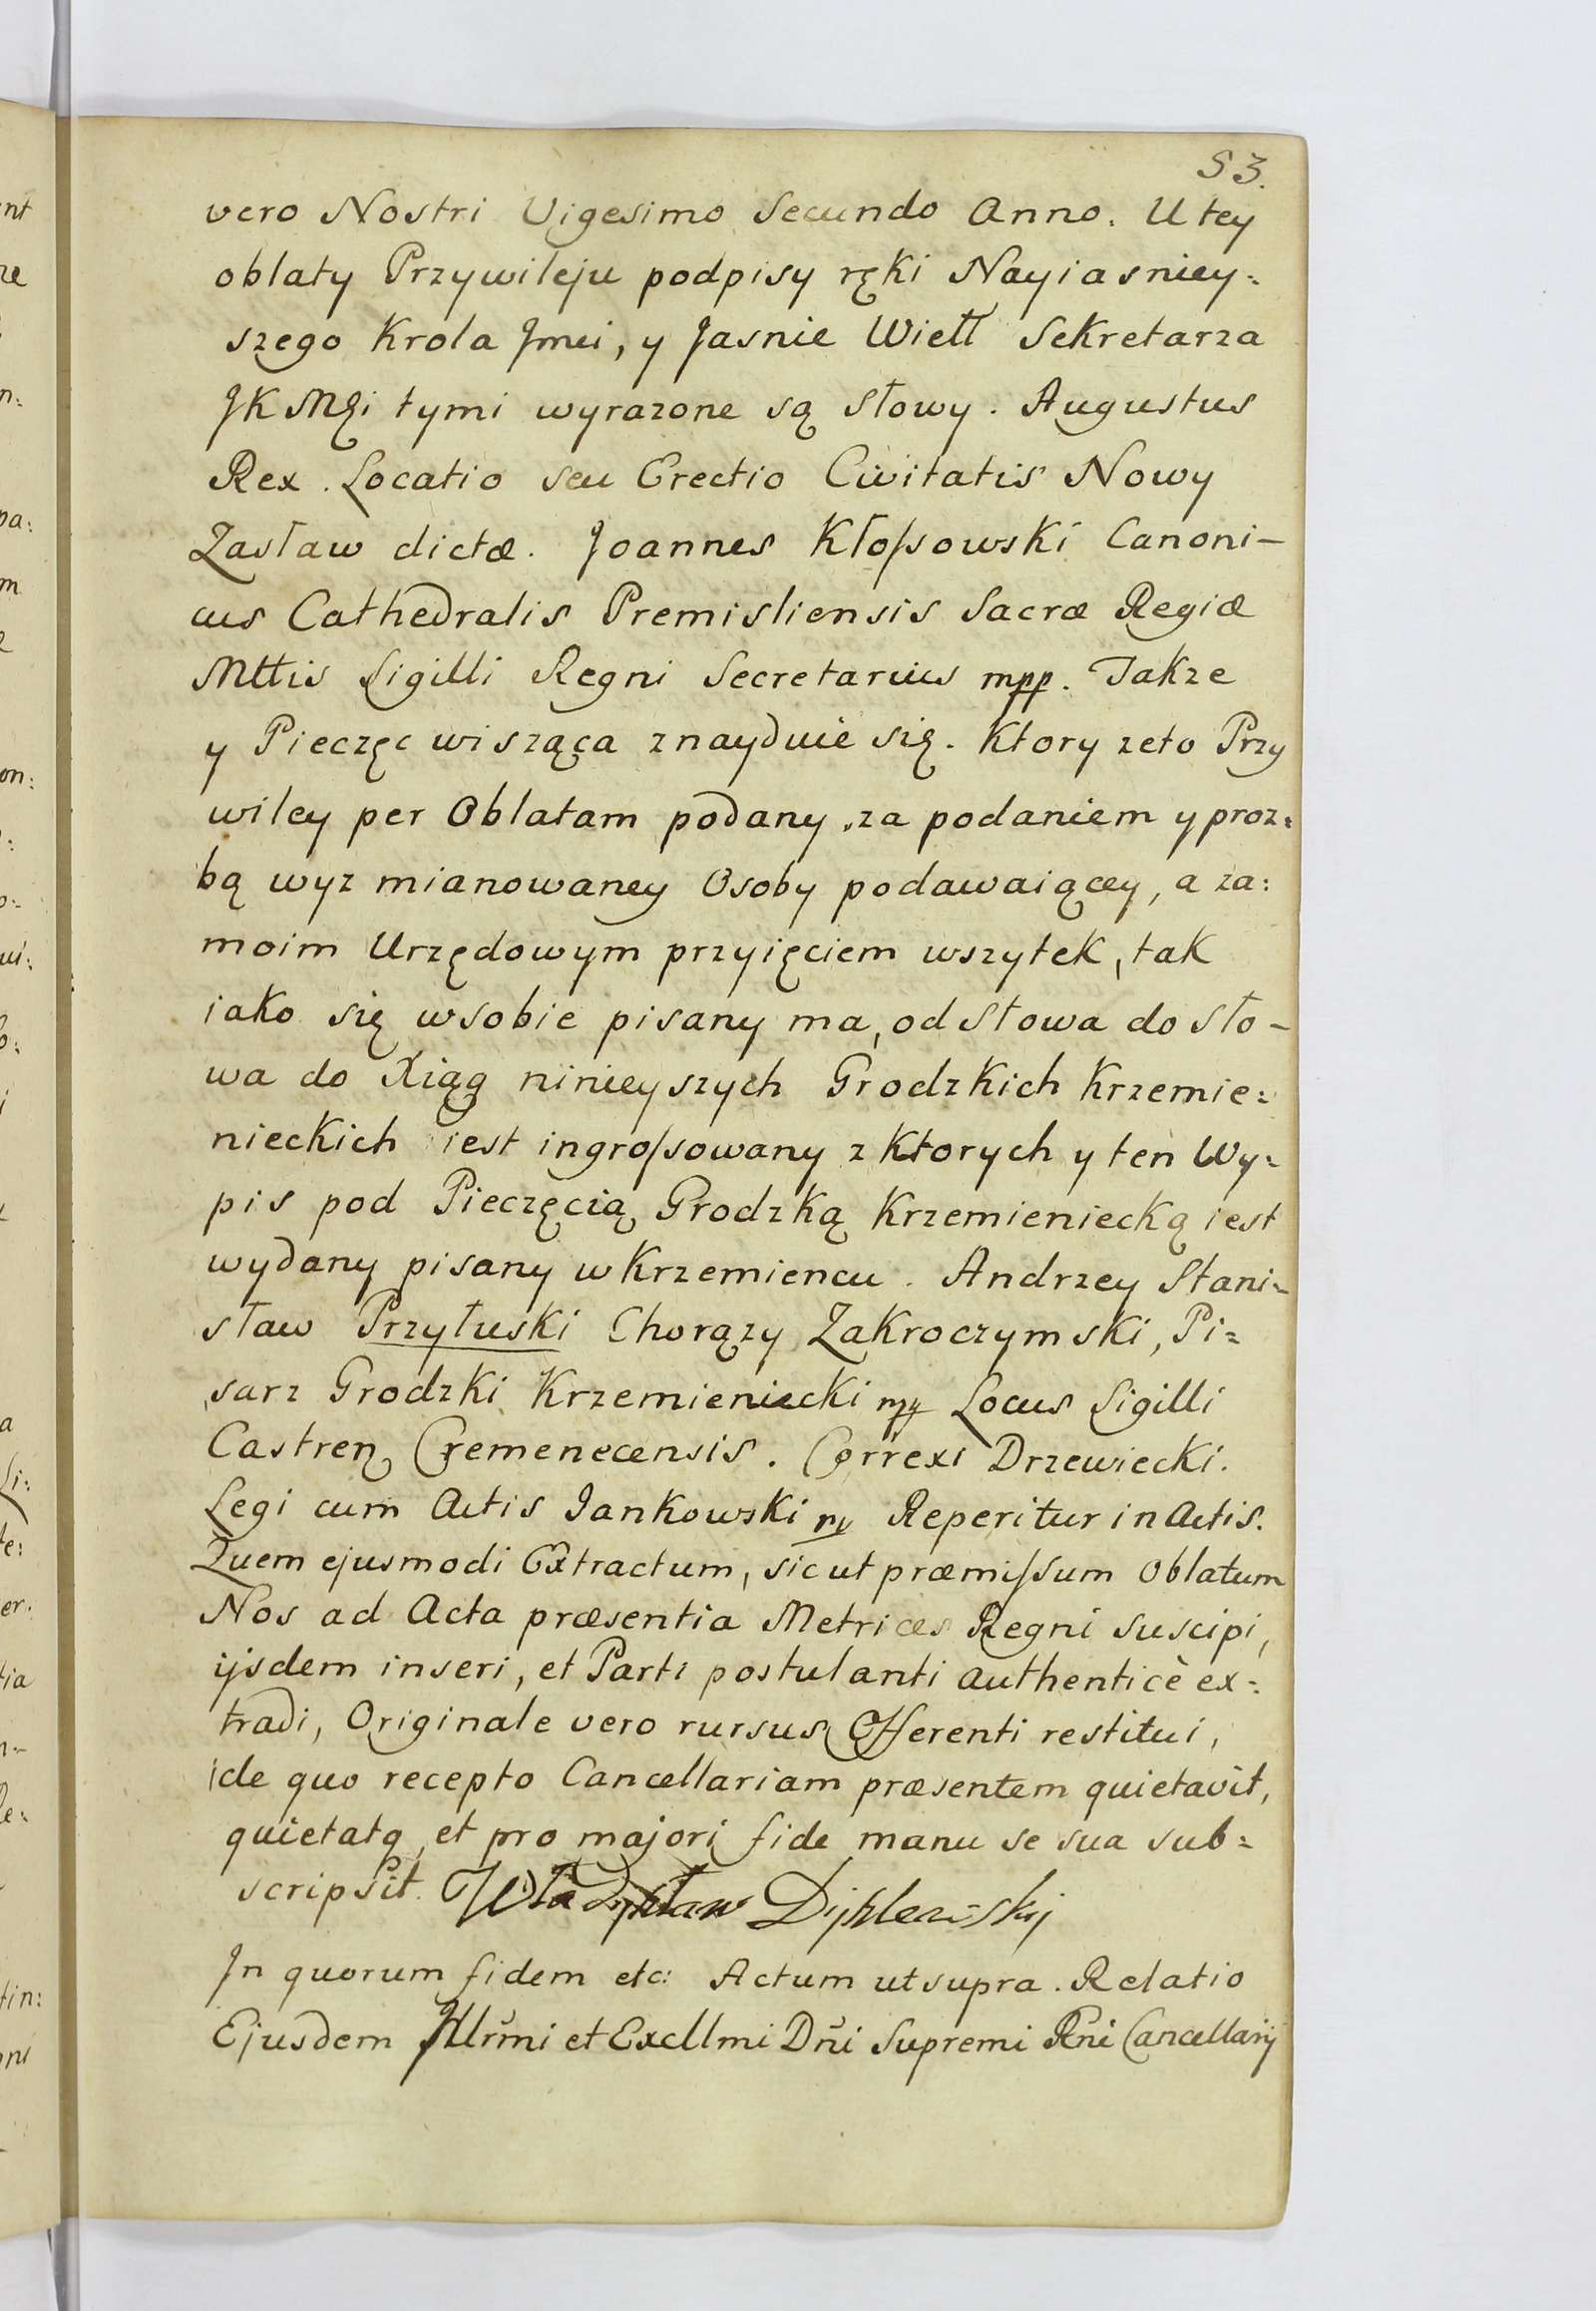 53.
vero Nostri Vigesimo Secundo Anno. U tey
oblaty Przywileju podpisy ręki Nayiasniey:
szego Krola Jmci, y Jasnie Wiell Sekretarza
JK Mci tymi wyrazone są słowy. Augustus
Rex. Locatio seu Erectio Civitatis Nowy
Zasław dictæ. Joannes Kłoſsowski Canoni-
cus Cathedralis Premisliensis Sacræ Regiæ
Mttis Sigilli Regni Secretarius mpp. Takze
y Pieczęc wisząca znayduie się. Ktory zeto Przy
wiley per Oblatam podany, za podaniem y proz:
bą wyz mianowaney Osoby podawaiącey, a za:
moim Urzędowym przyięciem wszytek, tak
iako się wsobie pisany ma, od słowa do sło-
wa do Xiąg ninieyszych Grodzkich Krzemie:
nieckich iest ingroſsowany z Ktorych y ten Wy:
pis pod Pieczęcią Grodzką Krzemieniecką iest
wydany pisany w Krzemiencu. Andrzey Stani-
sław Przyłuski Chorązy Zakroczymski, Pi:
sarz Grodzki Krzemieniecki mp Locus Sigilli
Castren Cremenecensis. Correxi Drzewiecki.
Legi cum Actis Jankowski mp Reperitur in Actis.
Quem ejusmodi Extractum, sicut præmiſsum Oblatum
Nos ad Acta præsentia Metrices Regni suscipi,
ijsdem inseri, et Parti postulanti authenticè ex:
tradi, Originale vero rursus Offerenti restitui,
de quo recepto Cancellariam præsentem quietavit,
quietatq, et pro majori fide manu se sua sub:
scripsit. Władysław
In quorum fidem etc: Actum ut supra. Relatio
Ejusdem Illrm̃i et Excllmi Dñi Supremi Rñi Cancellarij